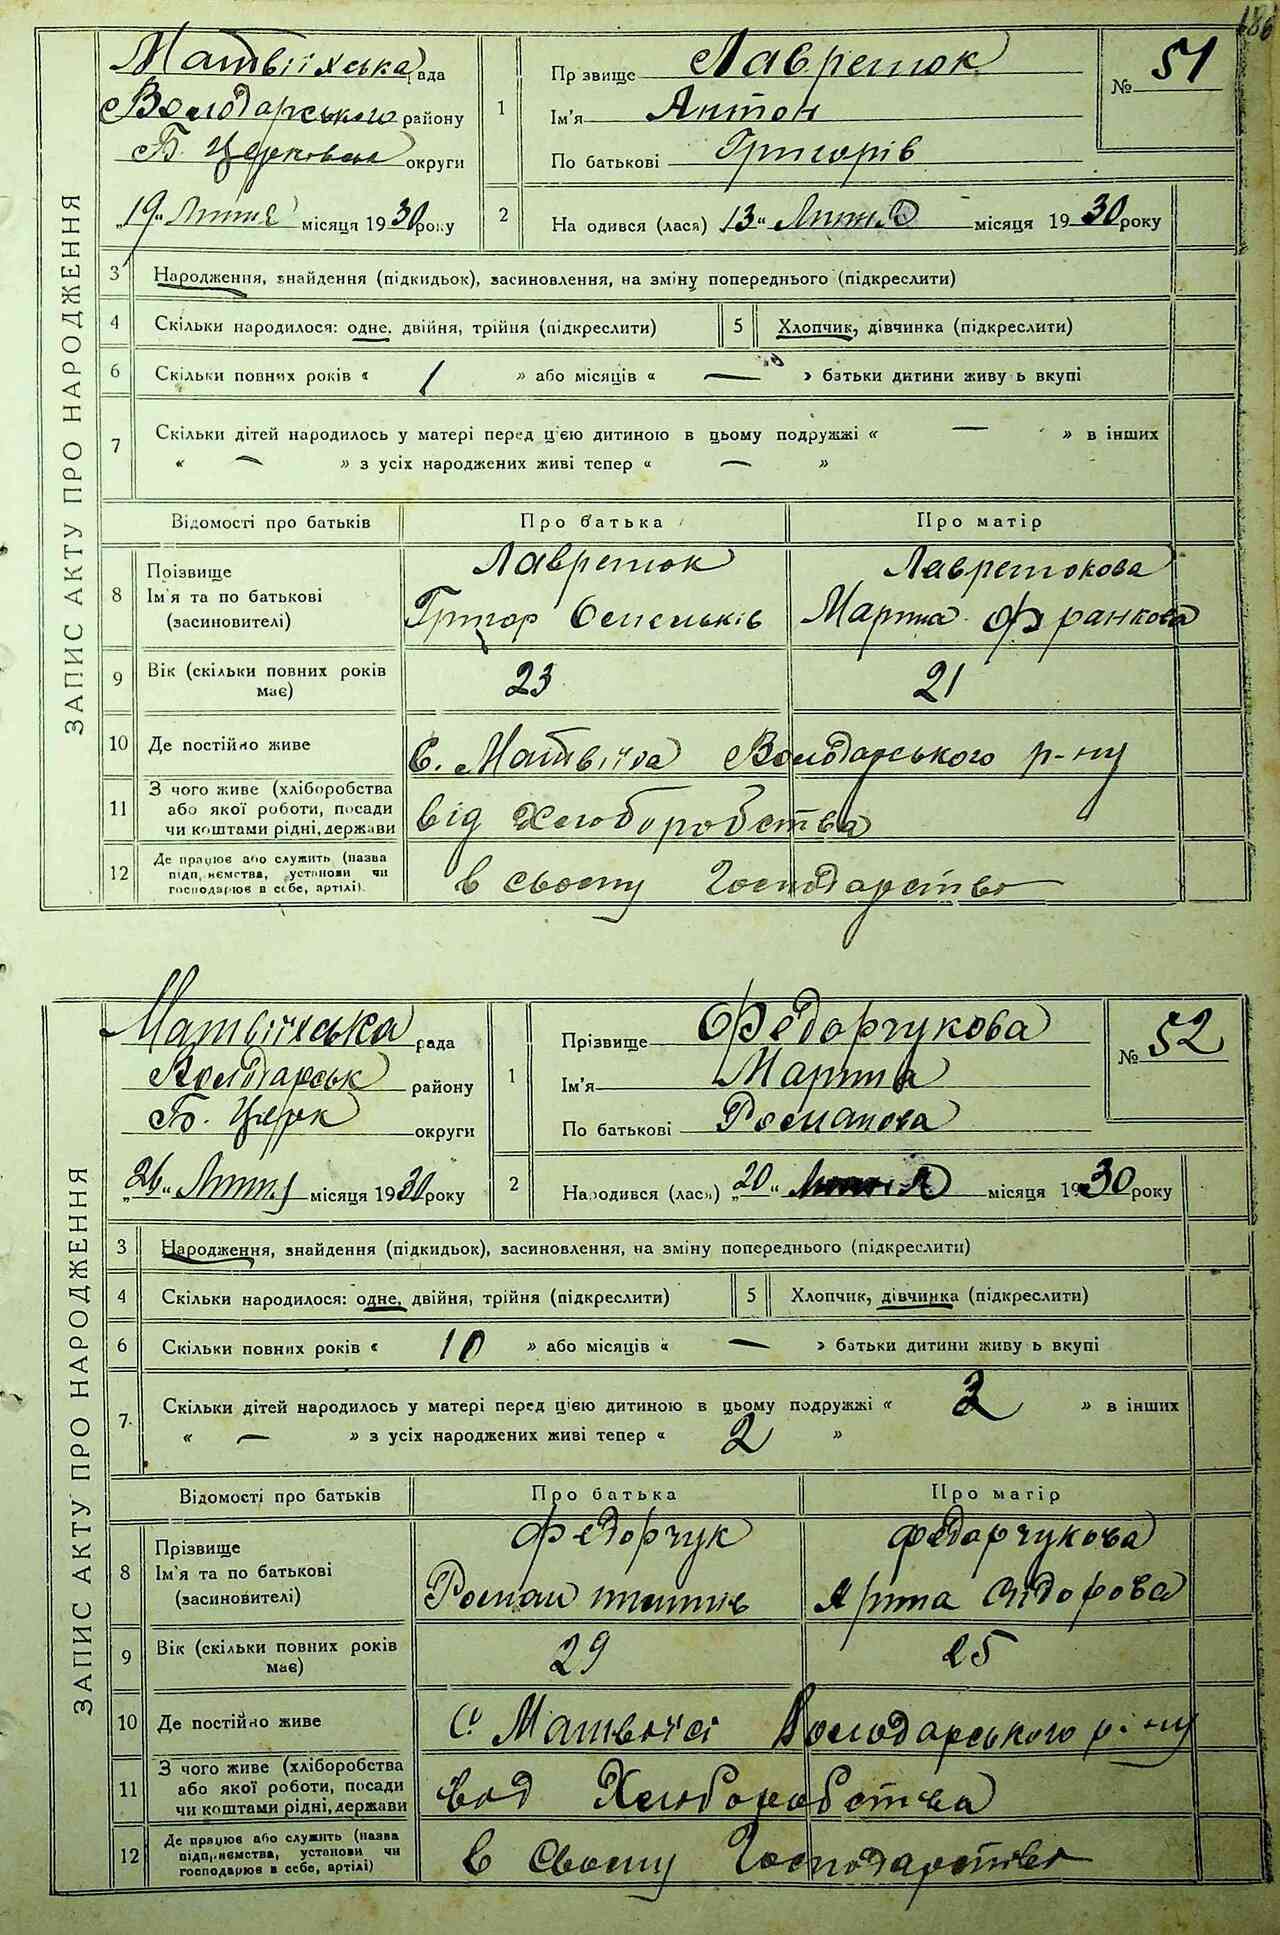 186
ЗАПИС АКТУ ПРО НАРОДЖЕННЯ
Матвіїхська рада
Володарського району
Б. Церковськ округи
„19“ Липня місяця 1930 року
1
Пр звище Лавренюк
Ім'я Антон
По батькові Григорів
№ 51
2 На одився (лася) 13“ Липня місяця 1930 року
3 Народження, знайдення (підкидьок), засиновлення, на зміну попереднього (підкреслити)
4 Скільки народилося: одне, двійня, трійня (підкреслити) 5 Хлопчик, дівчинка (підкреслити)
6 Скільки повних років « 1 » або місяців « — » батьки дитини живу ь вкупі
7 Скільки дітей народилось у матері перед цією дитиною в цьому подружжі « — » в інших
« — » з усіх народжених живі тепер « — »
Відомості про батьків Про батька Про матір
8 Прізвище Ім'я та по батькові (засиновителі)
Лавренюк Лавренюкова
Григор Омельків Марина Франкова
9 Вік (скільки повних років має) 23 21
10 Де постійно живе С. Матвіїха Володарського р-ну
11 З чого живе (хліборобства або якої роботи, посади чи коштами рідні, держави від хліборобства
12 Де працює або служить (назва підп, немства, установи чи господарює в себе, артілі). в своєму господарстві
ЗАПИС АКТУ ПРО НАРОДЖЕННЯ
Матвіїхська рада
Володарськ району
Б. Церк округи
„26“ Липня місяця 1930 року
1
Прізвище Федорчукова
Ім'я Марина
По батькові Романова
№ 52
2 Народився (лася) „20“ Липня місяця 1930 року
3 Народження, знайдення (підкидьок), засиновлення, на зміну попереднього (підкреслити)
4 Скільки народилося: одне, двійня, трійня (підкреслити) 5 Хлопчик, дівчинка (підкреслити)
6 Скільки повних років « 10 » або місяців « — » батьки дитини живу ь вкупі
7. Скільки дітей народилось у матері перед цією дитиною в цьому подружжі « 2 » в інших
« — » з усіх народжених живі тепер « 2 »
Відомості про батьків Про батька Про матір
8 Прізвище Ім'я та по батькові (засиновителі)
Федорчук Федорчукова
Роман Ярина Сидорова
9 Вік (скільки повних років має) 29 25
10 Де постійно живе С. Володарського р-ну
11 З чого живе (хліборобства або якої роботи, посади чи коштами рідні, держави від Хліборобства
12 Де працює або служить (назва підп, немства, установи чи господарює в себе, артілі) в Своєму Господарстві